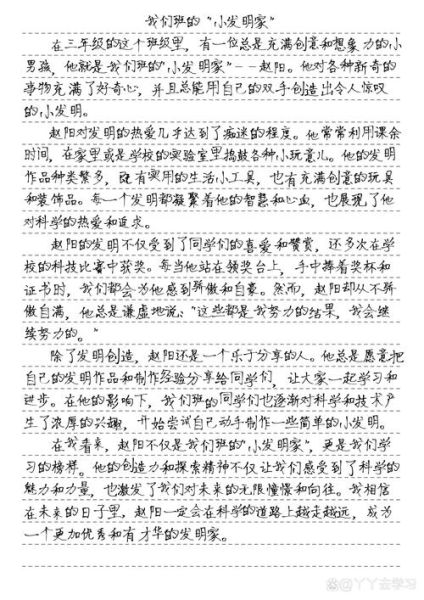 我们班的“小发明家”
在三年级的这个班级里，有一位总是充满创意和想象力的小
男孩，他就是我们班的“小发明家”--赵阳。他对各种新奇的
事物充满了好奇心，并且总能用自己的双手创造出令人惊叹
的小发明。
赵阳对发明的热爱几乎达到了痴迷的程度。他常常利用课余
时间，在家里或是学校的实验室里捣鼓各种小玩意儿。他的发明
作品种类繁多，既有实用的生活小工具，也有充满创意的玩具
和装饰品。每一个发明都凝聚着他的智慧和心血，也展现了他
对科学的热爱和追求。
赵阳的发明不仅受到了同学们的喜爱和赞赏，还多次在学
校的科技比赛中获奖。每当他站在领奖台上，手中捧着奖杯和
证书时，我们都会为他感到骄傲和自豪。然而，赵阳却从不骄
傲自满，他总是谦虚地说：“这些都是我努力的结果，我会继
续努力的。”
除了发明创造，赵阳还是一个乐于分享的人。他总是愿意把
自己的发明作品和制作经验分享给同学们，让大家一起学习和
进步。在他的影响下，我们班的同学们也逐渐对科学和技术产
生了浓厚的兴趣，开始尝试自己动手制作一些简单的小发明。
在我看来，赵阳不仅是我们班的“小发明家”，更是我们学
习的榜样。他的创造力和探索精神不仅让我们感受到了科学的
魅力和力量，也激发了我们对未来的无限憧憬和向往。我相信
在未来的日子里，赵阳一定会在科学的道路上越走越远，成为
一个更加优秀和有才华的发明家。
@丫丫去学习